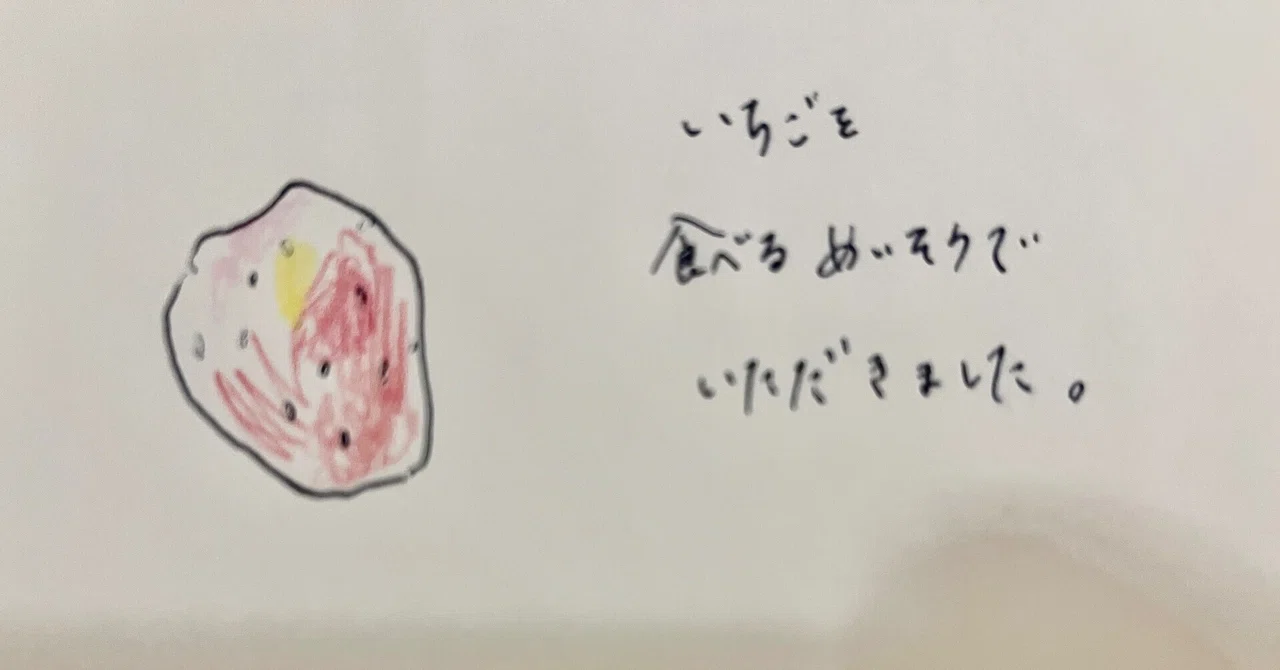 いちごを
食べる めいそうで
いただきました。